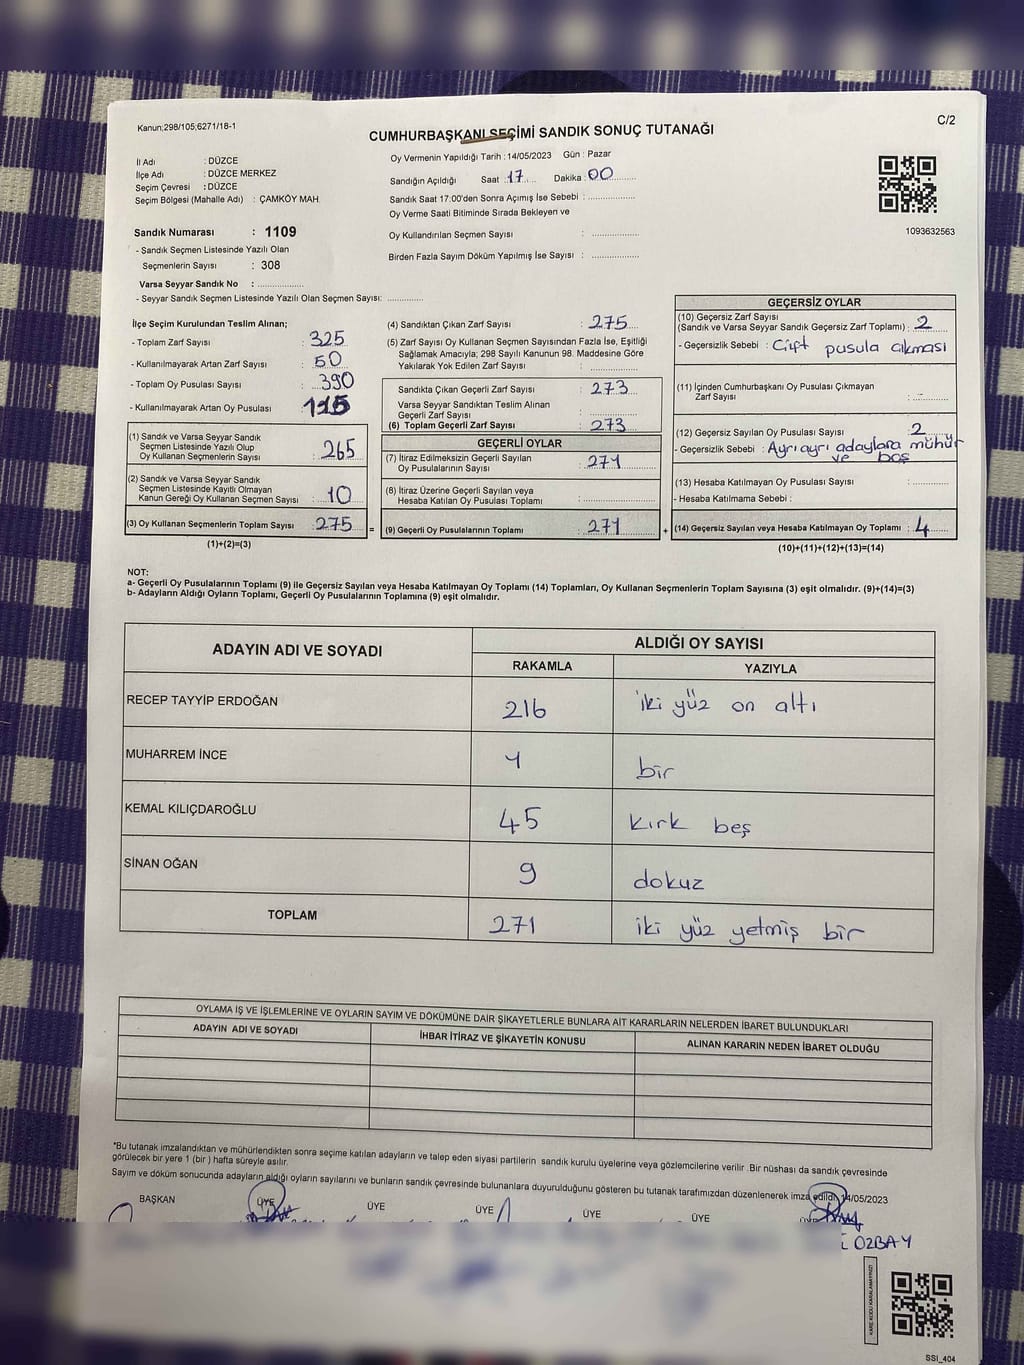 Kanun;298/105;6271/18-1
C/2
CUMHURBAŞKANI SEÇİMİ SANDIK SONUÇ TUTANAĞI
İl Adı : DÜZCE
İlçe Adı : DÜZCE MERKEZ
Seçim Çevresi : DÜZCE
Seçim Bölgesi (Mahalle Adı) : ÇAMKÖY MAH.
Oy Vermenin Yapıldığı Tarih : 14/05/2023 Gün : Pazar
Sandığın Açıldığı Saat : 17 Dakika : 00
Sandık Saat 17.00'den Sonra Açımış İse Sebebi : ..............
Oy Verme Saati Bitiminde Sırada Bekleyen ve
Oy Kullandırılan Seçmen Sayısı : ..............
Birden Fazla Sayım Döküm Yapılmış İse Sayısı : ..............
1093632563
Sandık Numarası : 1109
- Sandık Seçmen Listesinde Yazılı Olan
Seçmenlerin Sayısı : 308
Varsa Seyyar Sandık No : ..............
- Seyyar Sandık Seçmen Listesinde Yazılı Olan Seçmen Sayısı: ...........
İlçe Seçim Kurulundan Teslim Alınan;
- Toplam Zarf Sayısı : 325
- Kullanılmayarak Artan Zarf Sayısı : 50
- Toplam Oy Pusulası Sayısı : 390
- Kullanılmayarak Artan Oy Pusulası : 115
(1) Sandık ve Varsa Seyyar Sandık
Seçmen Listesinde Yazılı Olup
Oy Kullanan Seçmenlerin Sayısı : 265
(2) Sandık ve Varsa Seyyar Sandık
Seçmen Listesinde Kayıtlı Olmayan
Kanun Gereği Oy Kullanan Seçmen Sayısı : 10
(3) Oy Kullanan Seçmenlerin Toplam Sayısı : 275 =
(1)+(2)=(3)
(4) Sandıktan Çıkan Zarf Sayısı : 275
(5) Zarf Sayısı Oy Kullanan Seçmen Sayısından Fazla İse, Eşitliği
Sağlamak Amacıyla; 298 Sayılı Kanunun 98. Maddesine Göre
Yakılarak Yok Edilen Zarf Sayısı : ..............
Sandıkta Çıkan Geçerli Zarf Sayısı : 273
Varsa Seyyar Sandıktan Teslim Alınan
Geçerli Zarf Sayısı : ..............
(6) Toplam Geçerli Zarf Sayısı : 273
GEÇERLİ OYLAR
(7) İtiraz Edilmeksizin Geçerli Sayılan
Oy Pusulalarının Sayısı : 271
(8) İtiraz Üzerine Geçerli Sayılan veya
Hesaba Katılan Oy Pusulası Toplamı : ..............
(9) Geçerli Oy Pusulalarının Toplamı : 271 +
GEÇERSİZ OYLAR
(10) Geçersiz Zarf Sayısı
(Sandık ve Varsa Seyyar Sandık Geçersiz Zarf Toplamı) : 2
- Geçersizlik Sebebi : Çift pusula çıkması
(11) İçinden Cumhurbaşkanı Oy Pusulası Çıkmayan
Zarf Sayısı : ..........
(12) Geçersiz Sayılan Oy Pusulası Sayısı : 2
- Geçersizlik Sebebi : Ayrı ayrı adaylara mühür
ve boş
(13) Hesaba Katılmayan Oy Pusulası Sayısı : ..........
- Hesaba Katılmama Sebebi :
(14) Geçersiz Sayılan veya Hesaba Katılmayan Oy Toplamı : 4
(10)+(11)+(12)+(13)=(14)
NOT:
a- Geçerli Oy Pusulalarının Toplamı (9) ile Geçersiz Sayılan veya Hesaba Katılmayan Oy Toplamı (14) Toplamları, Oy Kullanan Seçmenlerin Toplam Sayısına (3) eşit olmalıdır. (9)+(14)=(3)
b- Adayların Aldığı Oyların Toplamı, Geçerli Oy Pusulalarının Toplamına (9) eşit olmalıdır.
ADAYIN ADI VE SOYADI ALDIĞI OY SAYISI
RAKAMLA YAZIYLA
RECEP TAYYİP ERDOĞAN 216 iki yüz on altı
MUHARREM İNCE 1 bir
KEMAL KILIÇDAROĞLU 45 kırk beş
SİNAN OĞAN 9 dokuz
TOPLAM 271 iki yüz yetmiş bir
OYLAMA İŞ VE İŞLEMLERİNE VE OYLARIN SAYIM VE DÖKÜMÜNE DAİR ŞİKAYETLERLE BUNLARA AİT KARARLARIN NELERDEN İBARET BULUNDUKLARI
ADAYIN ADI VE SOYADI İHBAR İTİRAZ VE ŞİKAYETİN KONUSU ALINAN KARARIN NEDEN İBARET OLDUĞU
*Bu tutanak imzalandıktan ve mühürlendikten sonra seçime katılan adayların ve talep eden siyasi partilerin sandık kurulu üyelerine veya gözlemcilerine verilir .Bir nüshası da sandık çevresinde
görülecek bir yere 1 (bir ) hafta süreyle asılır.
Sayım ve döküm sonucunda adayların aldığı oyların sayılarını ve bunların sandık çevresinde bulunanlara duyurulduğunu gösteren bu tutanak tarafımızdan düzenlenerek imza edildi. 14/05/2023
BAŞKAN ÜYE ÜYE ÜYE ÜYE ÜYE
ÖZBAY
KARE KODU KARALAMAYINIZ!
SSI_404